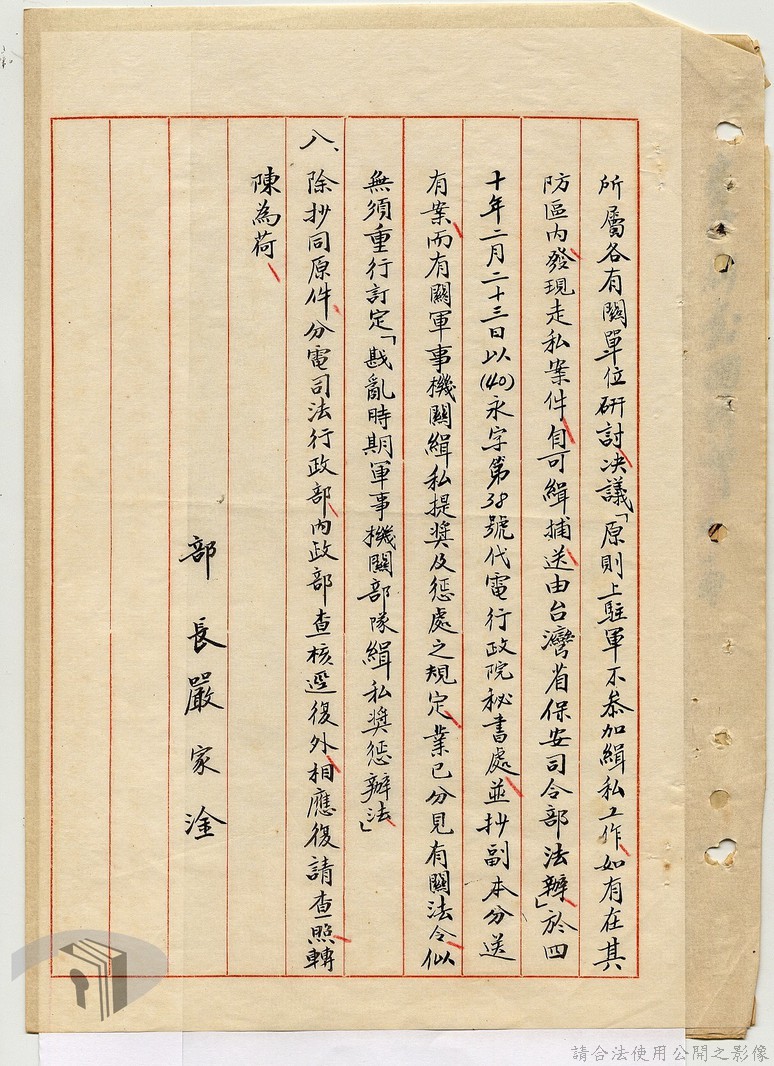 所屬各有關單位研討決議「原則上駐軍不參加緝私工作如有在其
防區內發現走私案件自可緝捕送由台灣省保安司令部法辦」於四
十年二月二十三日以(40)永字第38號代電行政院秘書處並抄副本分送
有案而有關軍事機關緝私提奬及惩處之規定業已分見有關法令似
無須重行訂定「戡亂時期軍事機關部隊緝私奬惩辦法」
八、除抄同原件分電司法行政部內政部查核逕復外相應復請查照轉
陳為荷
部長嚴家淦
請合法使用公開之影像